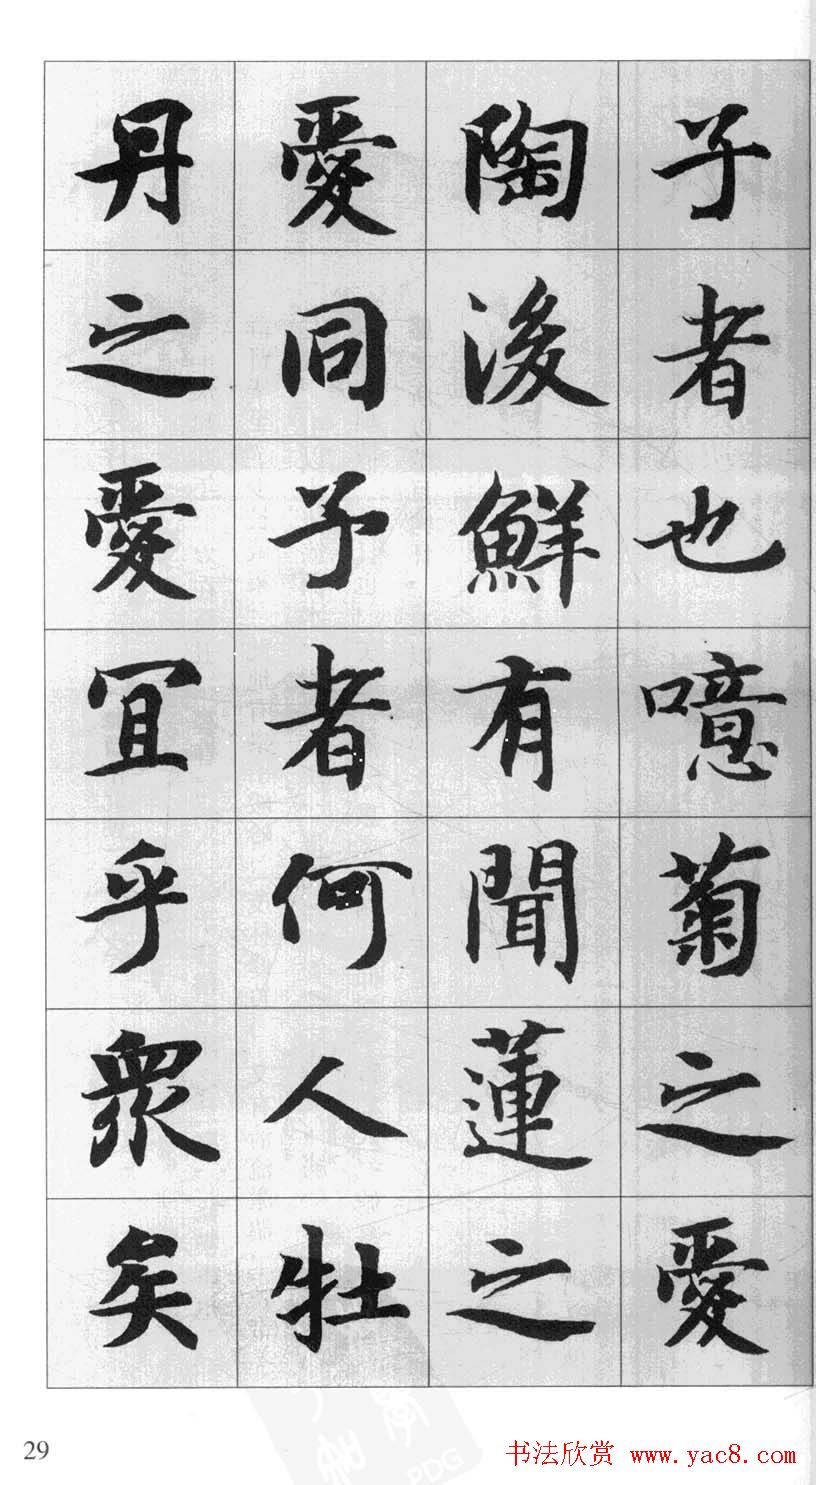 子者也噫菊之愛
陶後鮮有聞蓮之
愛同予者何人牡
丹之愛宜乎衆矣
29
书法欣赏 www.yac8.com